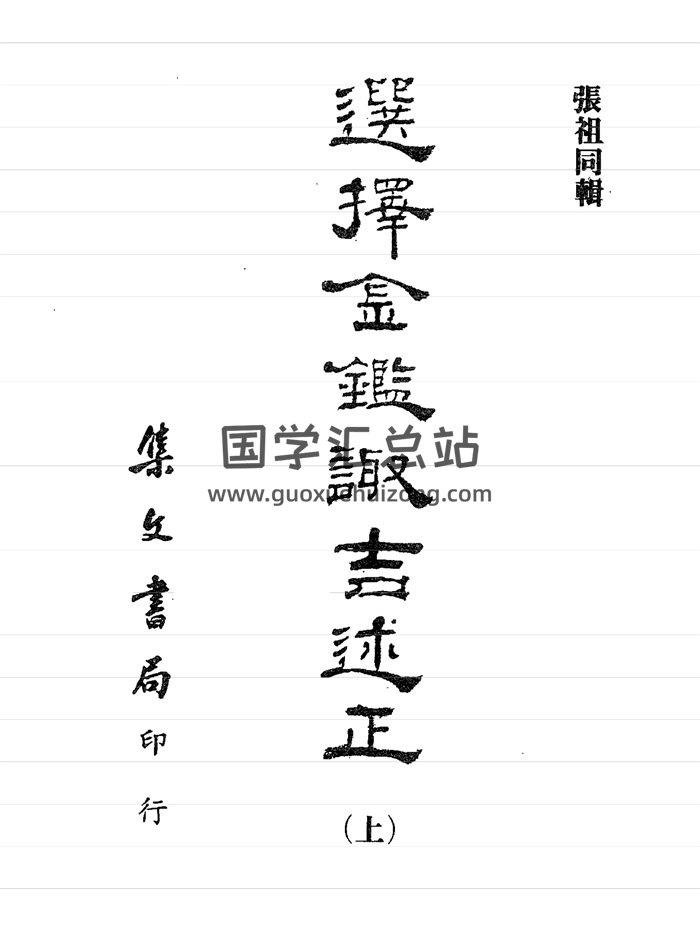 張祖同輯
選擇金鑑諏吉述正
（上）
集文書局印行
国学汇总站
www.guoxuehuizong.com